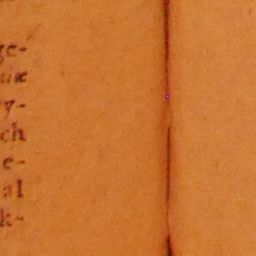 ge-
me
y-
ch
e-
al
k-